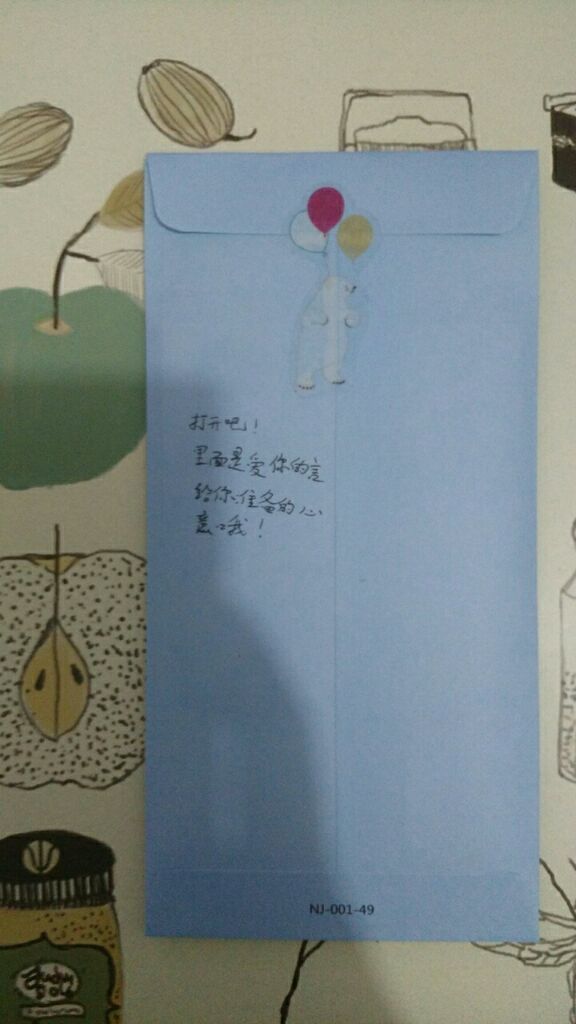 打开吧！
里面是爱你的
给你准备的心
意哦！
NJ-001-49